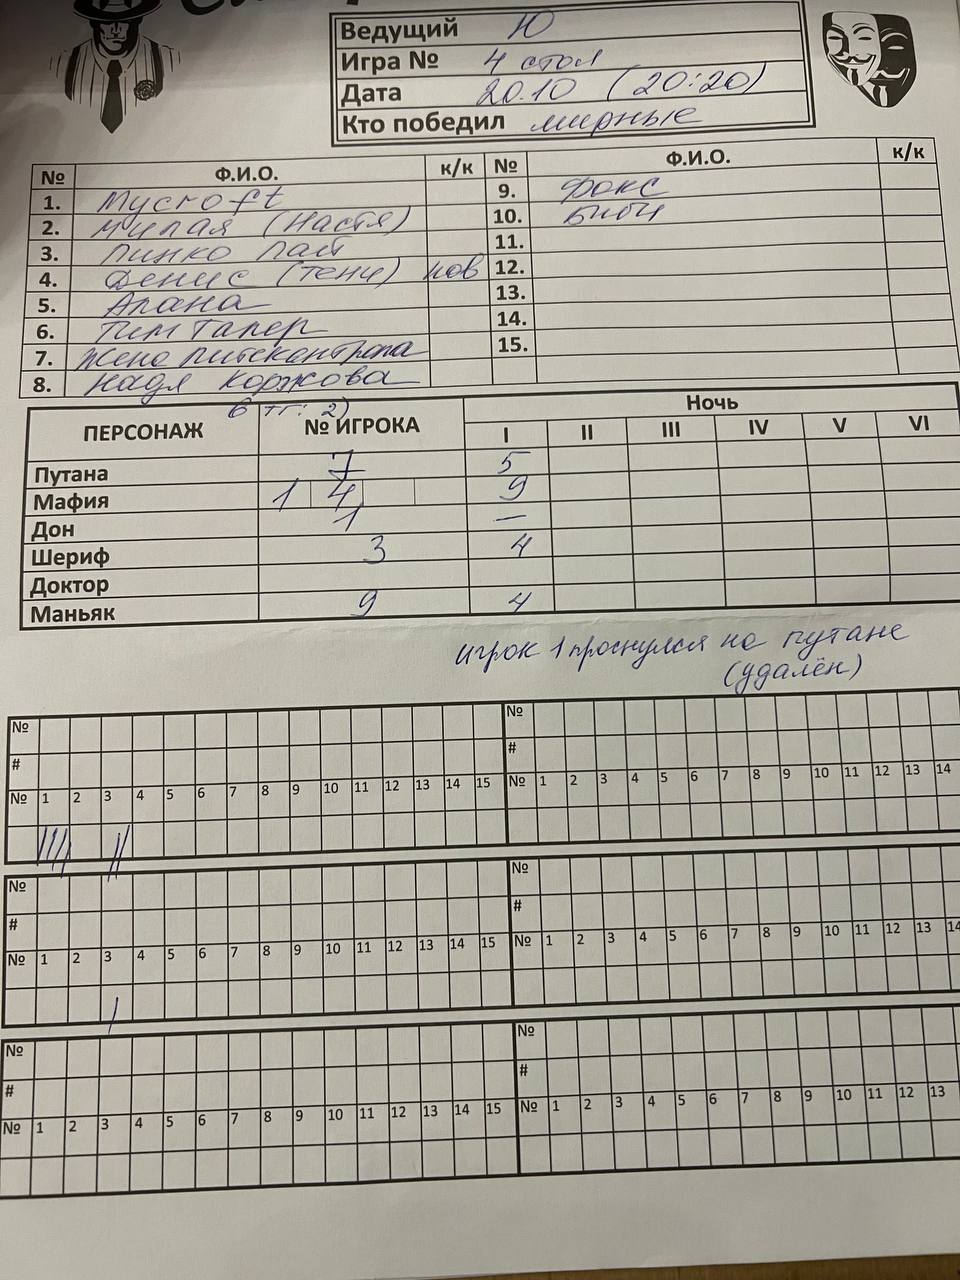 Ведущий Ю
Игра № 4 стол
Дата 20.10 (20:20)
Кто победил мирные
№ Ф.И.О. к/к № Ф.И.О. к/к
1. Mycroft 9. Фокс
2. Милая (Настя) 10. Биби
3. Пинко Пай 11.
4. Денис (тень) нов 12.
5. Алана 13.
6. Тим Талер 14.
7. Жена питекантропа 15.
8. Надя Коржова
в тг: 2)
ПЕРСОНАЖ № ИГРОКА Ночь
I II III IV V VI
Путана 7 5
Мафия 1 4 9
Дон 1 —
Шериф 3 4
Доктор
Маньяк 9 4
игрок 1 проснулся на путане
(удалён)
№ №
# #
№ 1 2 3 4 5 6 7 8 9 10 11 12 13 14 15 № 1 2 3 4 5 6 7 8 9 10 11 12 13 14
№ №
# #
№ 1 2 3 4 5 6 7 8 9 10 11 12 13 14 15 № 1 2 3 4 5 6 7 8 9 10 11 12 13 14
№ №
# #
№ 1 2 3 4 5 6 7 8 9 10 11 12 13 14 15 № 1 2 3 4 5 6 7 8 9 10 11 12 13